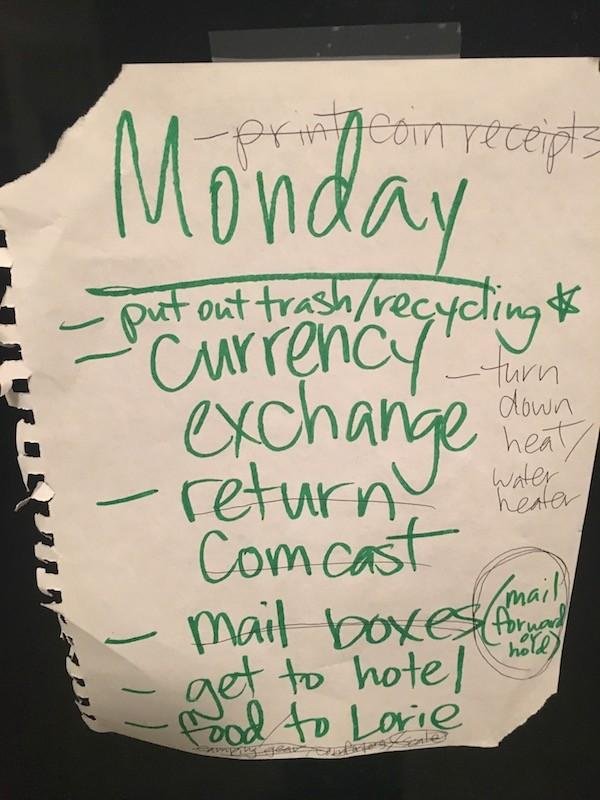 - print coin receipts
Monday
- put out trash/recycling
- Currency
exchange
- turn
down
heat/
water
heater
- return
Comcast
- mail boxes (mail
forward
or
hold)
- get to hotel
- food to Lorie
camping gear, computers & scale